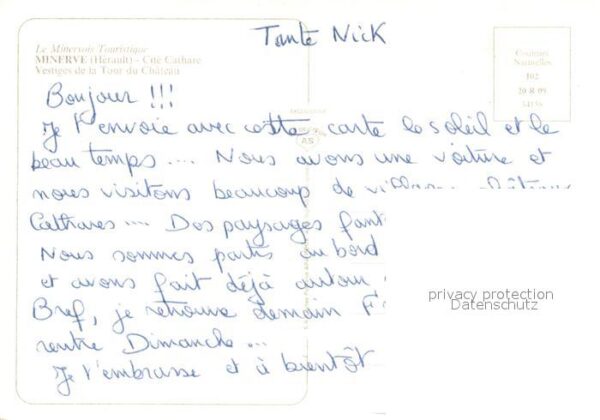 Tante Nick
Le Minervois Touristique
MINERVE (Hérault) - Cité Cathare
Vestiges de la Tour du Château
Couleurs
Naturelles
102
20 R 09
Bonjour !!!
Je t'envoie avec cette carte le soleil et le
beau temps .... Nous avons une voiture et
nous visitons beaucoup de
Cathares .... Des paysages
Nous sommes partis au bord
et avons fait déjà autour
Bref, je retrouve demain
rentre Dimanche ...
Je t'embrasse et à bientôt
privacy protection
Datenschutz